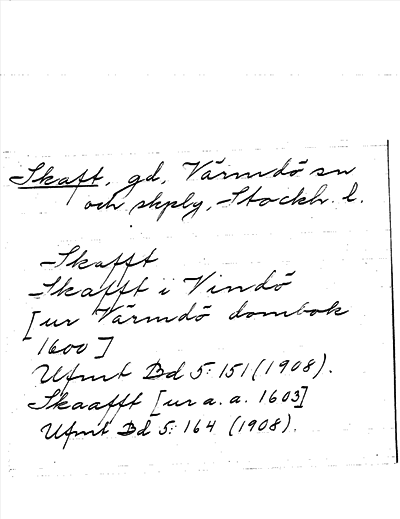 Skaft, gd, Värmdö sn
och skplg, Stockh. l.
Skafft
Skafft i Vindö
[ur Värmdö dombok
1600]
Ufmt Bd 5:151 (1908).
Skaafft [ur a. a. 1603]
Ufmt Bd 5:164 (1908).